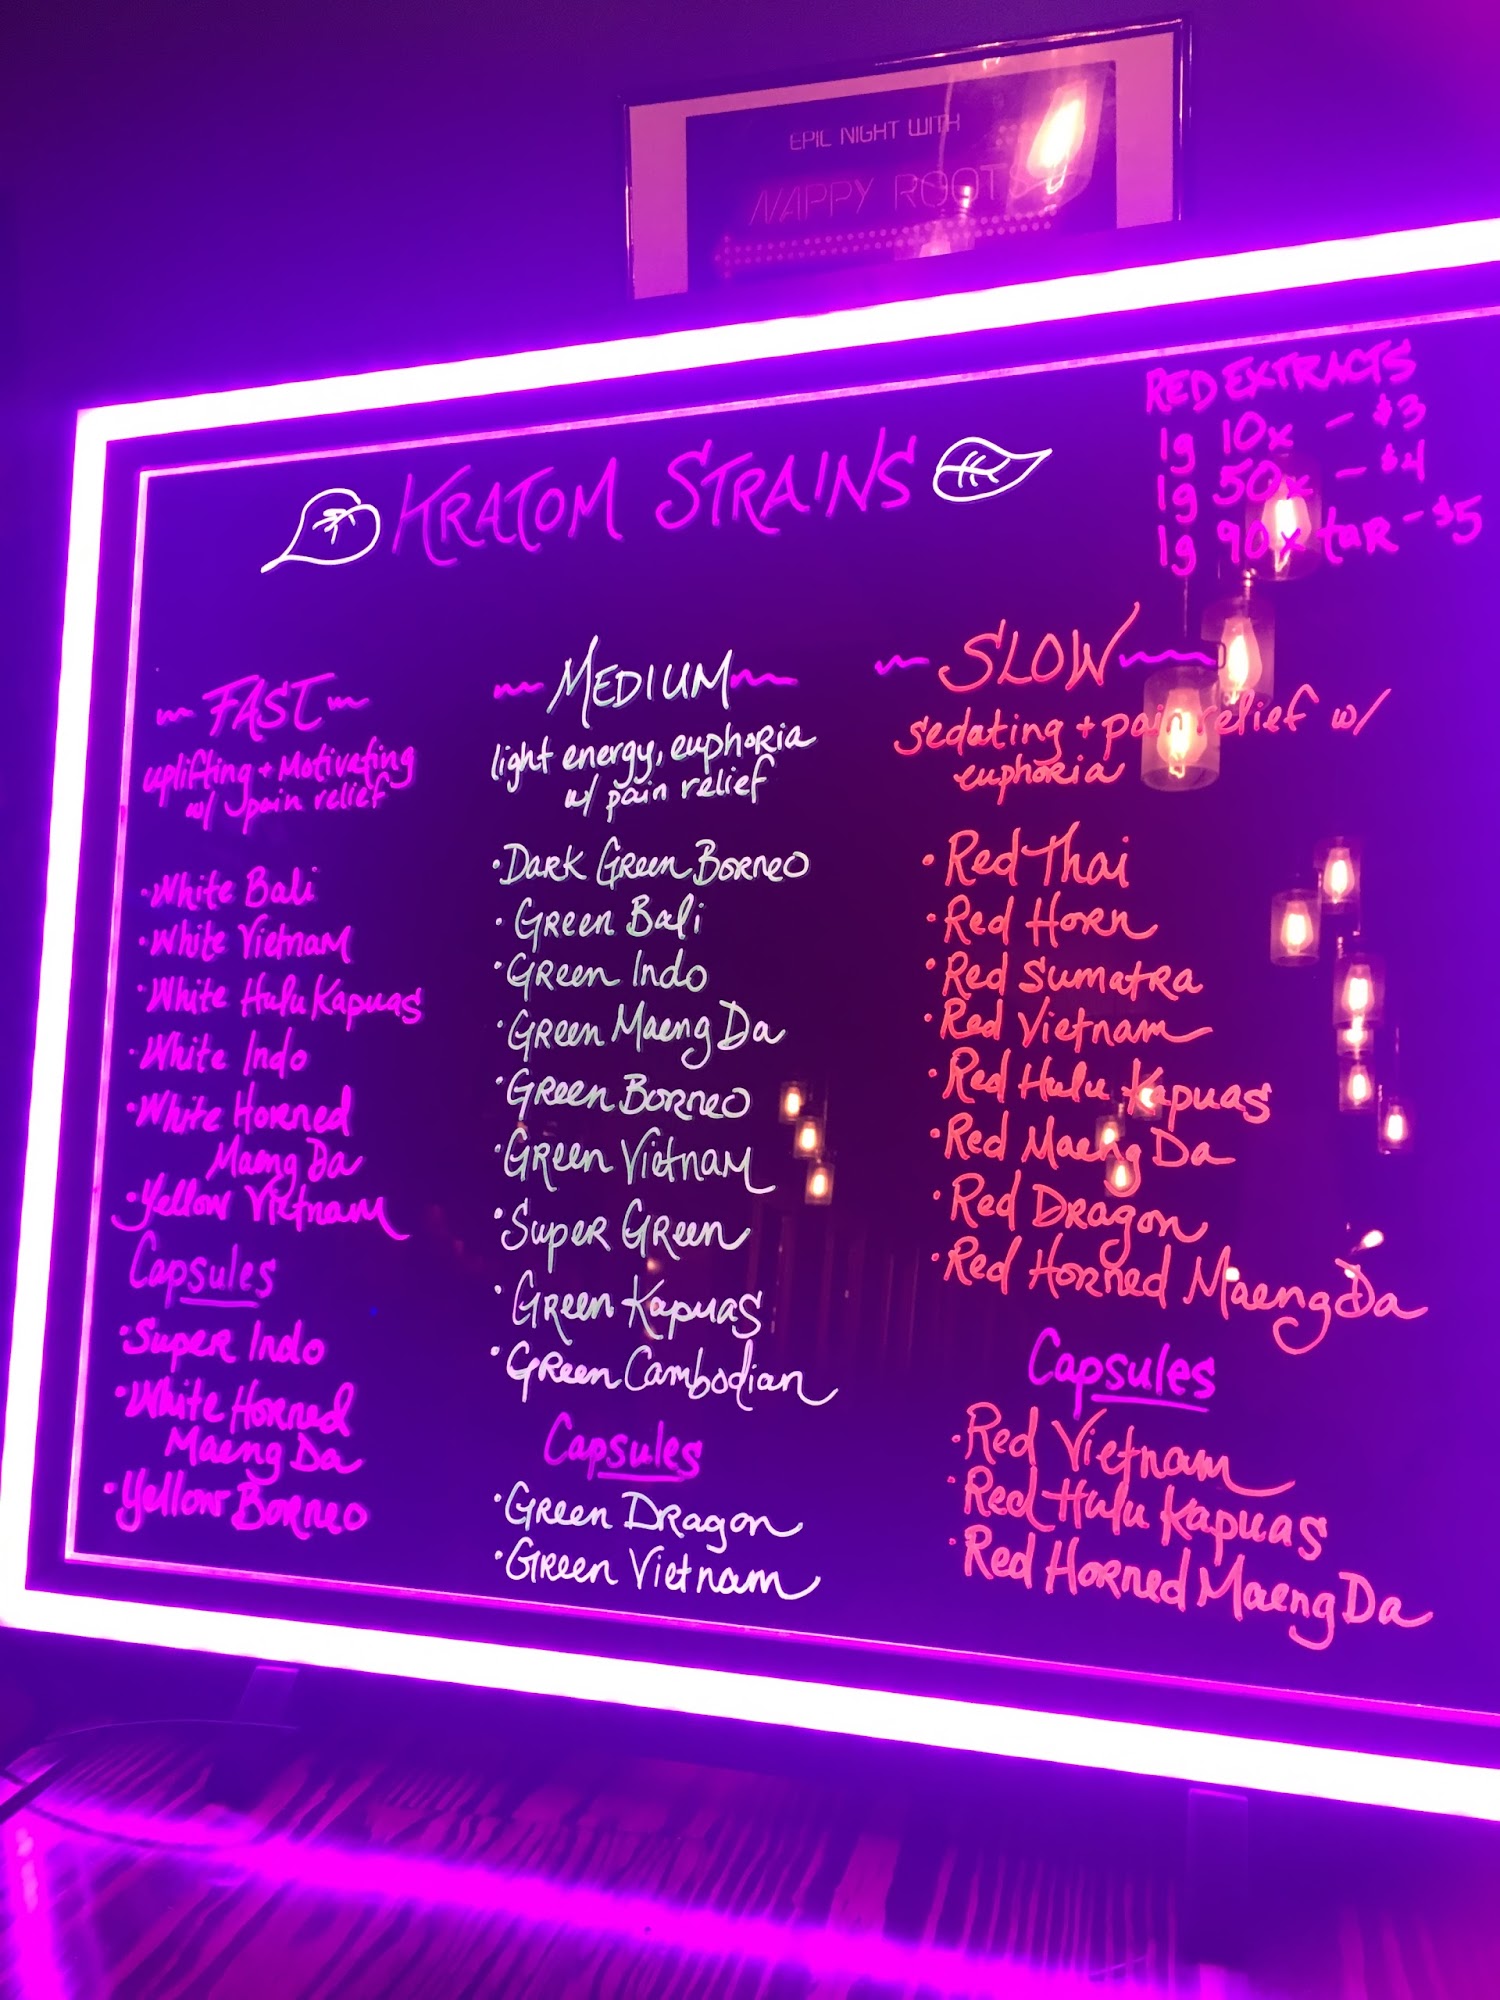 EPIC NIGHT WITH
NAPPY ROOTS
RED EXTRACTS
1g 10x - $3
1g 50x - $4
1g 90x tar - $5
KRATOM STRAINS
~ FAST ~
uplifting + Motivating
w/ pain relief
• White Bali
• White Vietnam
• White Hulu Kapuas
• White Indo
• White Horned
Maeng Da
• Yellow Vietnam
Capsules
• Super Indo
• White Horned
Maeng Da
• Yellow Borneo
~ MEDIUM ~
light energy, euphoria
w/ pain relief
• Dark Green Borneo
• Green Bali
• Green Indo
• Green Maeng Da
• Green Borneo
• Green Vietnam
• Super Green
• Green Kapuas
• Green Cambodian
Capsules
• Green Dragon
• Green Vietnam
~ SLOW ~
sedating + pain relief w/
euphoria
• Red Thai
• Red Horn
• Red Sumatra
• Red Vietnam
• Red Hulu Kapuas
• Red Maeng Da
• Red Dragon
• Red Horned Maeng Da
Capsules
• Red Vietnam
• Red Hulu Kapuas
• Red Horned Maeng Da